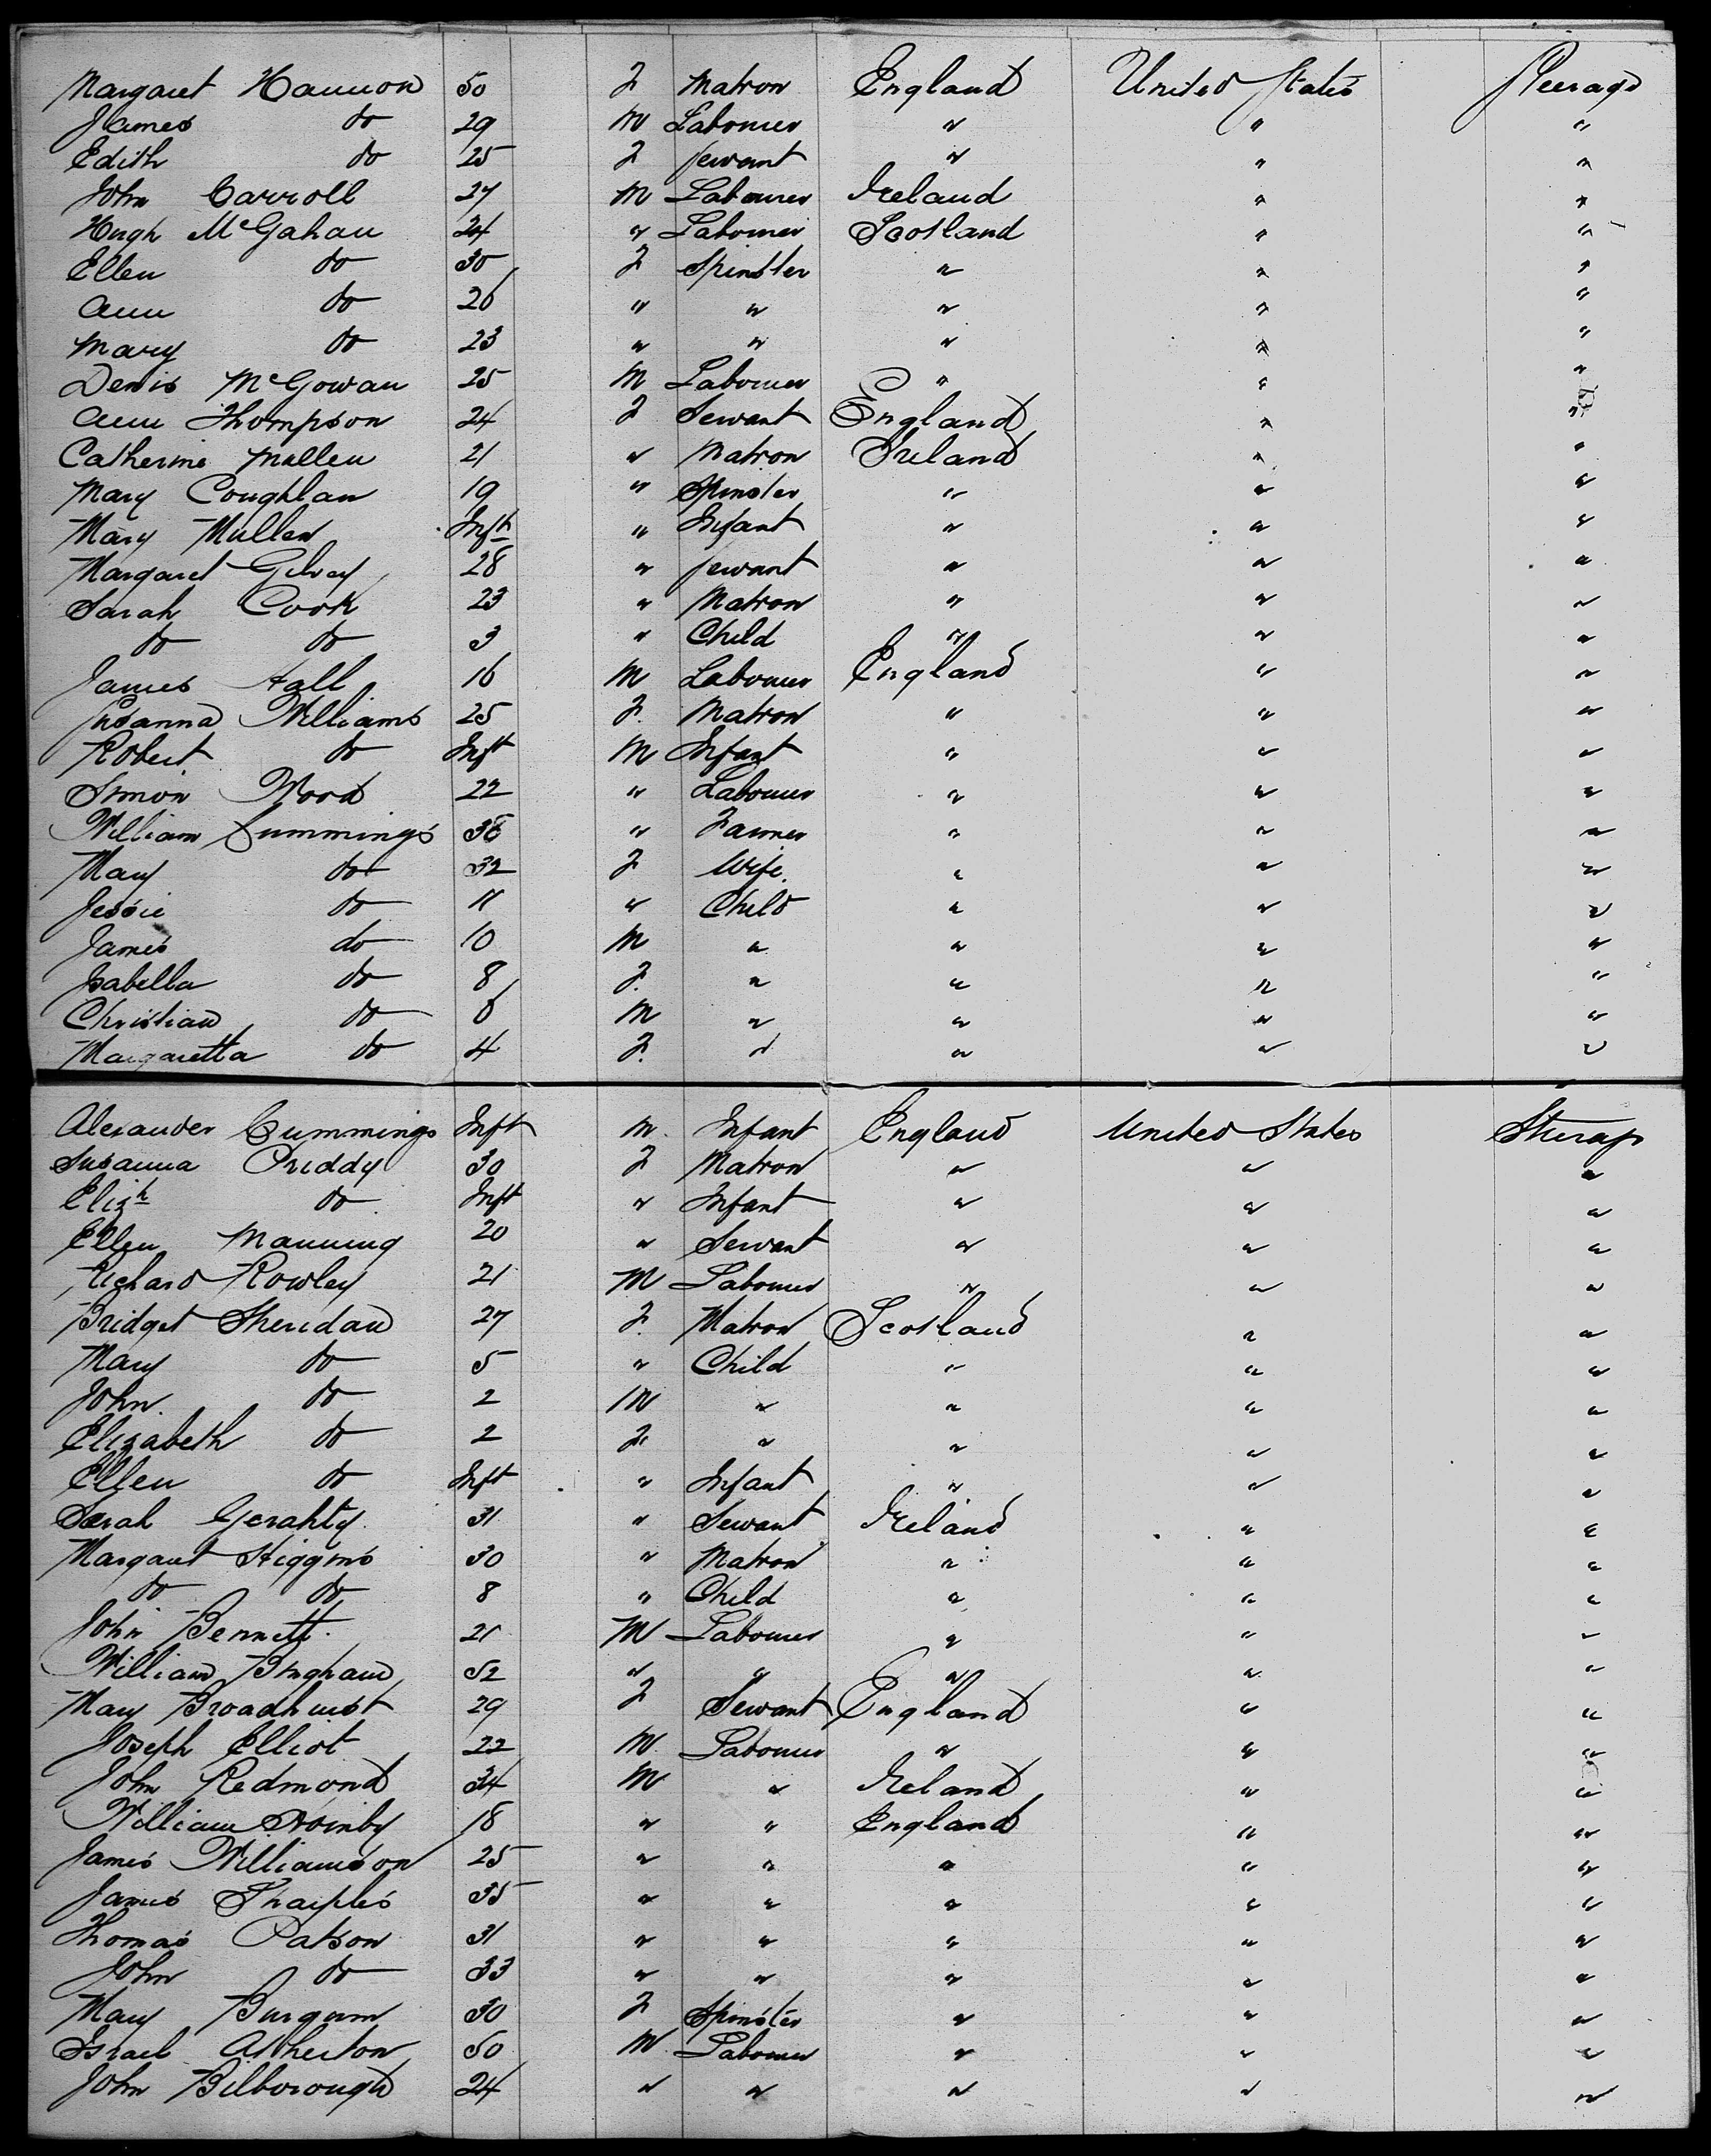 Margaret Hannon 50 F Matron England United States Steerage
James do 29 M Labourer " " "
Edith do 25 F Servant " " "
John Carroll 27 M Labourer Ireland " "
Hugh McGahan 24 " Labourer Scotland " "
Ellen do 30 F Spinster " " "
Ann do 26 " " " " "
Mary do 23 " " " " "
Denis McGowan 25 M Labourer " " "
Ann Thompson 24 F Servant England " "
Catherine Mullen 21 " Matron Ireland " "
Mary Coughlan 19 " Spinster " " "
Mary Mullen Inft " Infant " " "
Margaret Gilvey 28 " Servant " " "
Sarah Cook 23 " Matron " " "
do do 3 " Child " " "
James Hall 16 M Labourer England " "
Susanna Williams 25 F Matron " " "
Robert do Inft M Infant " " "
Simon Wood 22 " Labourer " " "
William Cummings 38 " Farmer " " "
Mary do 32 F Wife " " "
Jessie do 11 " Child " " "
James do 10 M " " " "
Isabella do 8 F " " " "
Christian do 6 M " " " "
Margaretta do 4 F " " " "
Alexander Cummings Inft M Infant England United States Steerage
Susanna Priddy 30 F Matron " " "
Elizh do Inft " Infant " " "
Ellen Manning 20 " Servant " " "
Richard Rowley 21 M Labourer " " "
Bridget Sheridan 27 F Matron Scotland " "
Mary do 5 " Child " " "
John do 2 M " " " "
Elizabeth do 2 F " " " "
Ellen do Inft " Infant " " "
Sarah Gerahty 31 " Servant Ireland " "
Margaret Higgins 30 " Matron " " "
do do 8 " Child " " "
John Bennett 21 M Labourer " " "
William Bingham 52 " " " " "
Mary Broadhurst 29 F Servant England " "
Joseph Elliot 22 M Labourer " " "
John Redmond 34 M " Ireland " "
William 18 " " England " "
James Williamson 25 " " " " "
James Sharples 35 " " " " "
Thomas Patson 31 " " " " "
John do 33 " " " " "
Mary Burgum 30 F Spinster " " "
Israel Atherton 50 M Labourer " " "
John Bilborough 24 " " " " "